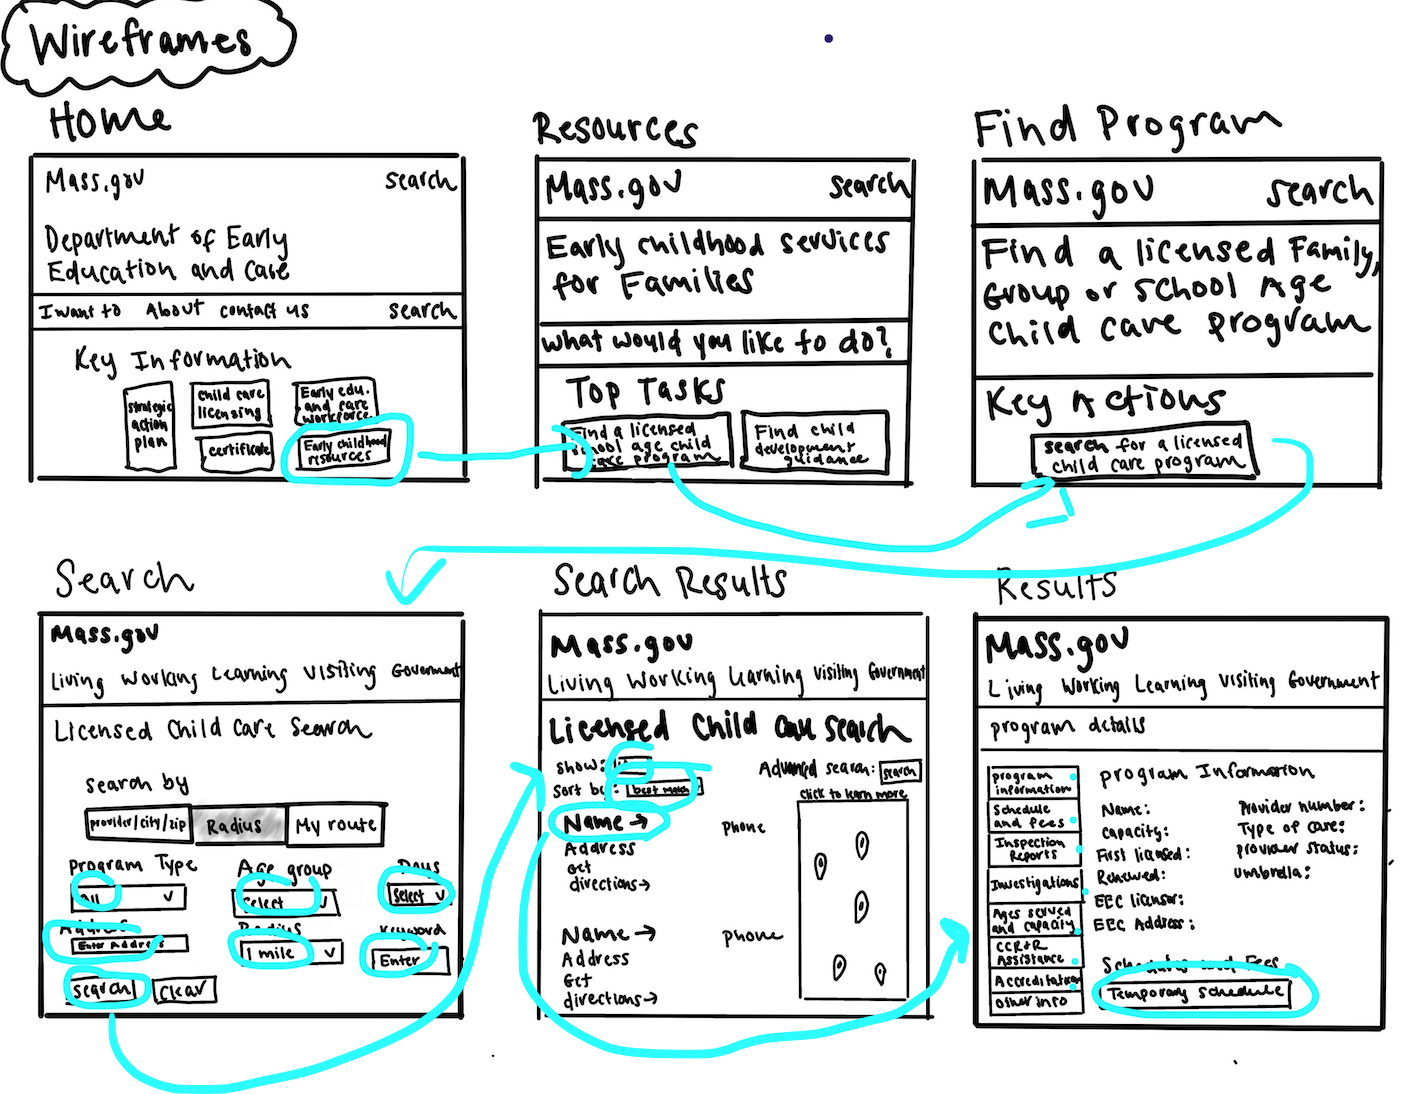 Wireframes
Home
Mass.gov search
Department of Early
Education and Care
I want to About contact us search
Key Information
strategic
action
plan
child care
licensing
certificate
Early edu.
and care
workforce
Early childhood
resources
Resources
Mass.gov search
Early childhood services
for Families
what would you like to do?
Top Tasks
Find a licensed
school age child
care program
Find child
development
guidance
Find Program
Mass.gov search
Find a licensed Family,
Group or School Age
Child care program
Key Actions
search for a licensed
child care program
Search
Mass.gov
Living Working Learning Visiting Government
Licensed Child Care Search
search by
provider/city/zip Radius My route
Program Type Age group Days
All Select Select
Address Radius Keyword
Enter Address 1 mile Enter
search clear
Search Results
Mass.gov
Living Working Learning Visiting Government
Licensed Child Care Search
Show:
Sort by: best match
Advanced search: search
Click to learn more
Name → phone
Address
Get
directions→
Name → phone
Address
Get
directions→
Results
Mass.gov
Living Working Learning Visiting Government
program details
program
information
Schedule
and fees
Inspection
Reports
Investigations
Ages served
and capacity
CCR+R
Assistance
Accreditation
other info
program Information
Name: Provider number:
Capacity: Type of care:
First licensed: provider status:
Renewed: umbrella:
EEC licensor:
EEC Address:
Schedules and Fees
Temporary schedule